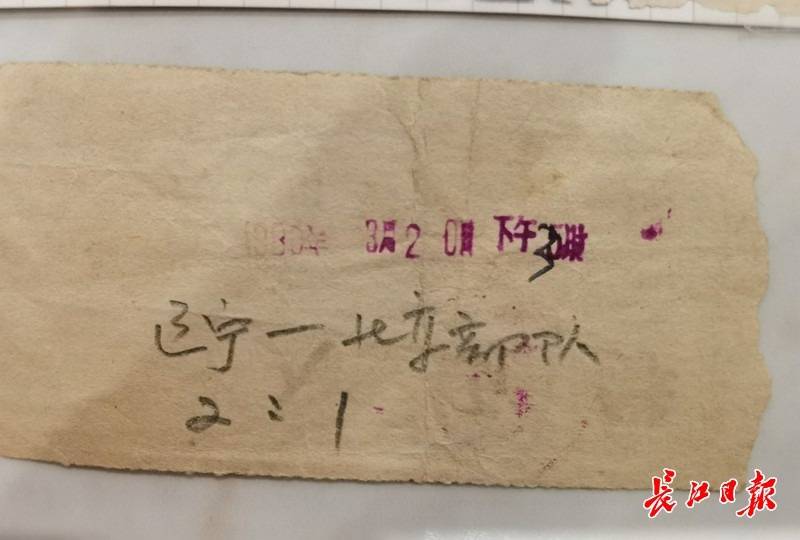 1980年 3月20日 下午3时
辽宁—北京部队
2:1
长江日报